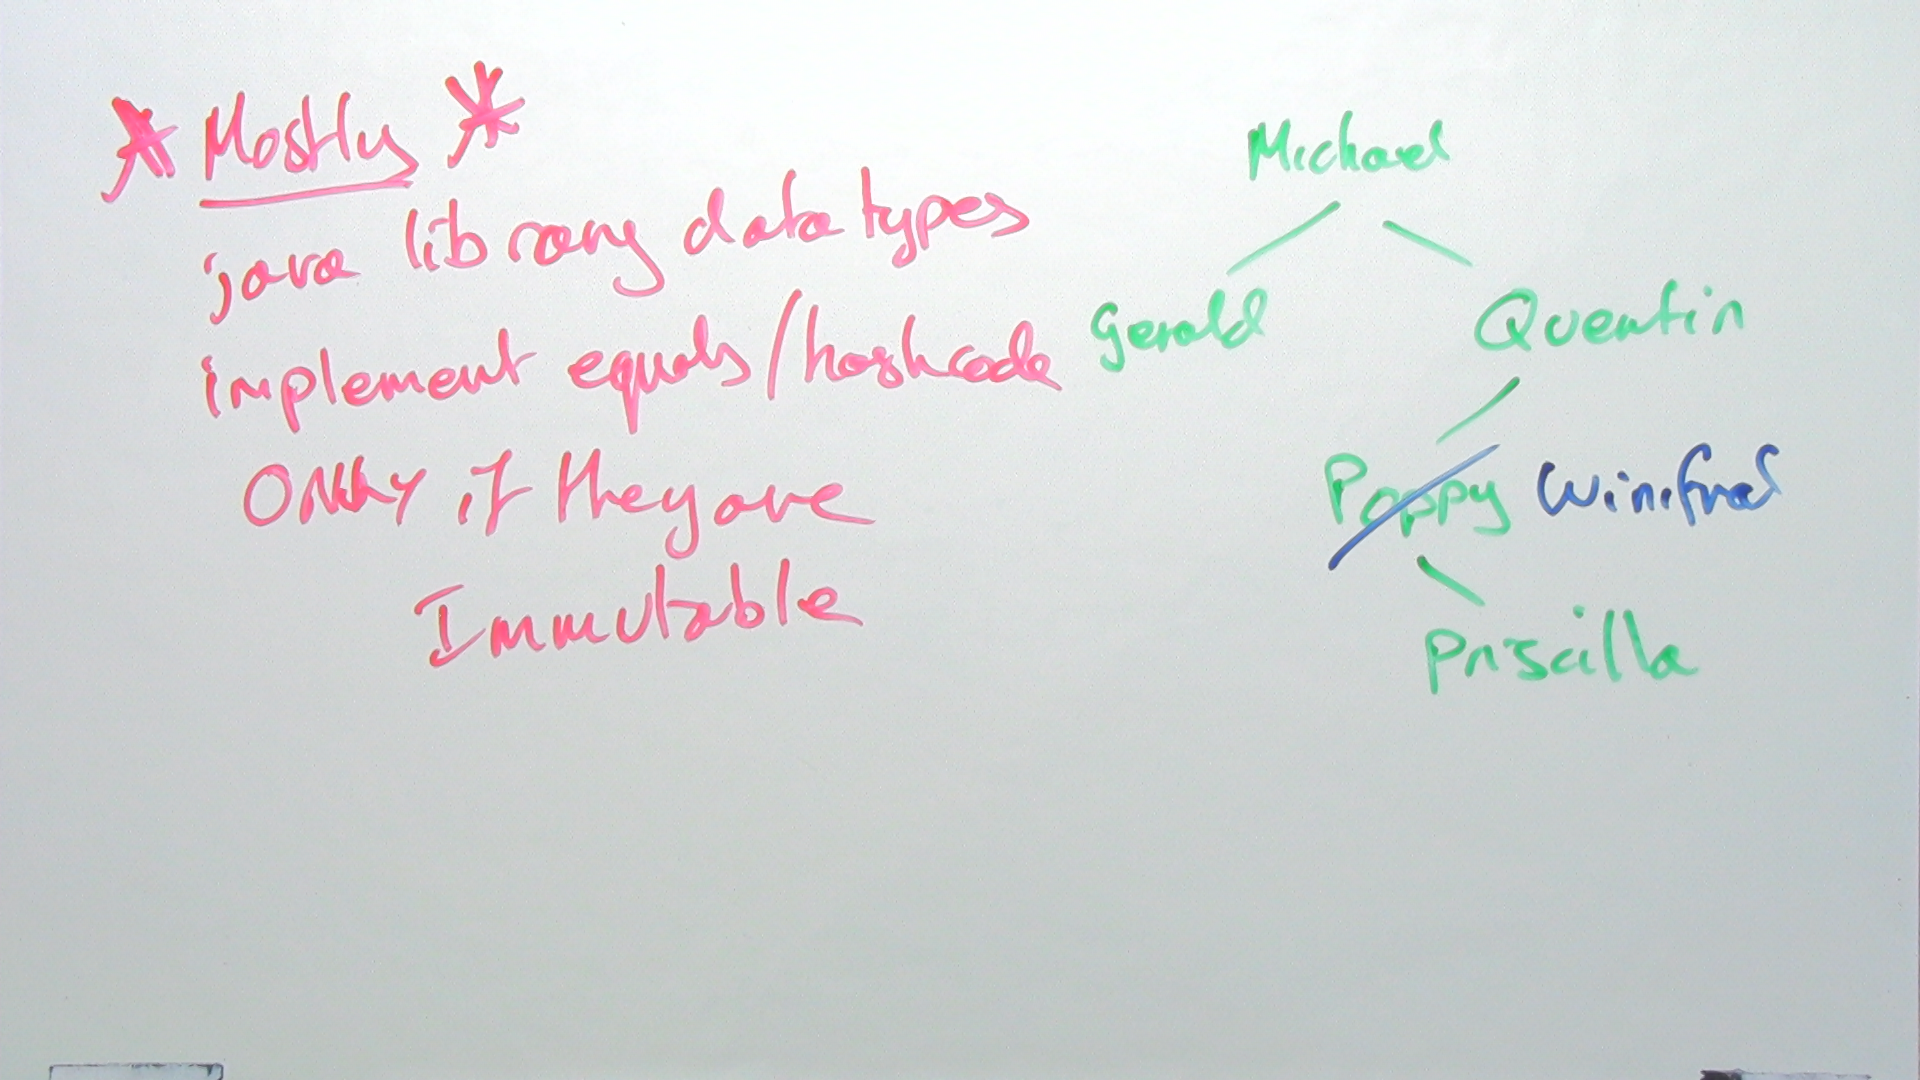 * Mostly *
java library datatypes
implement equals/hashcode
Only if they are
Immutable
Michael
Gerald
Quentin
Poppy Winifred
Priscilla